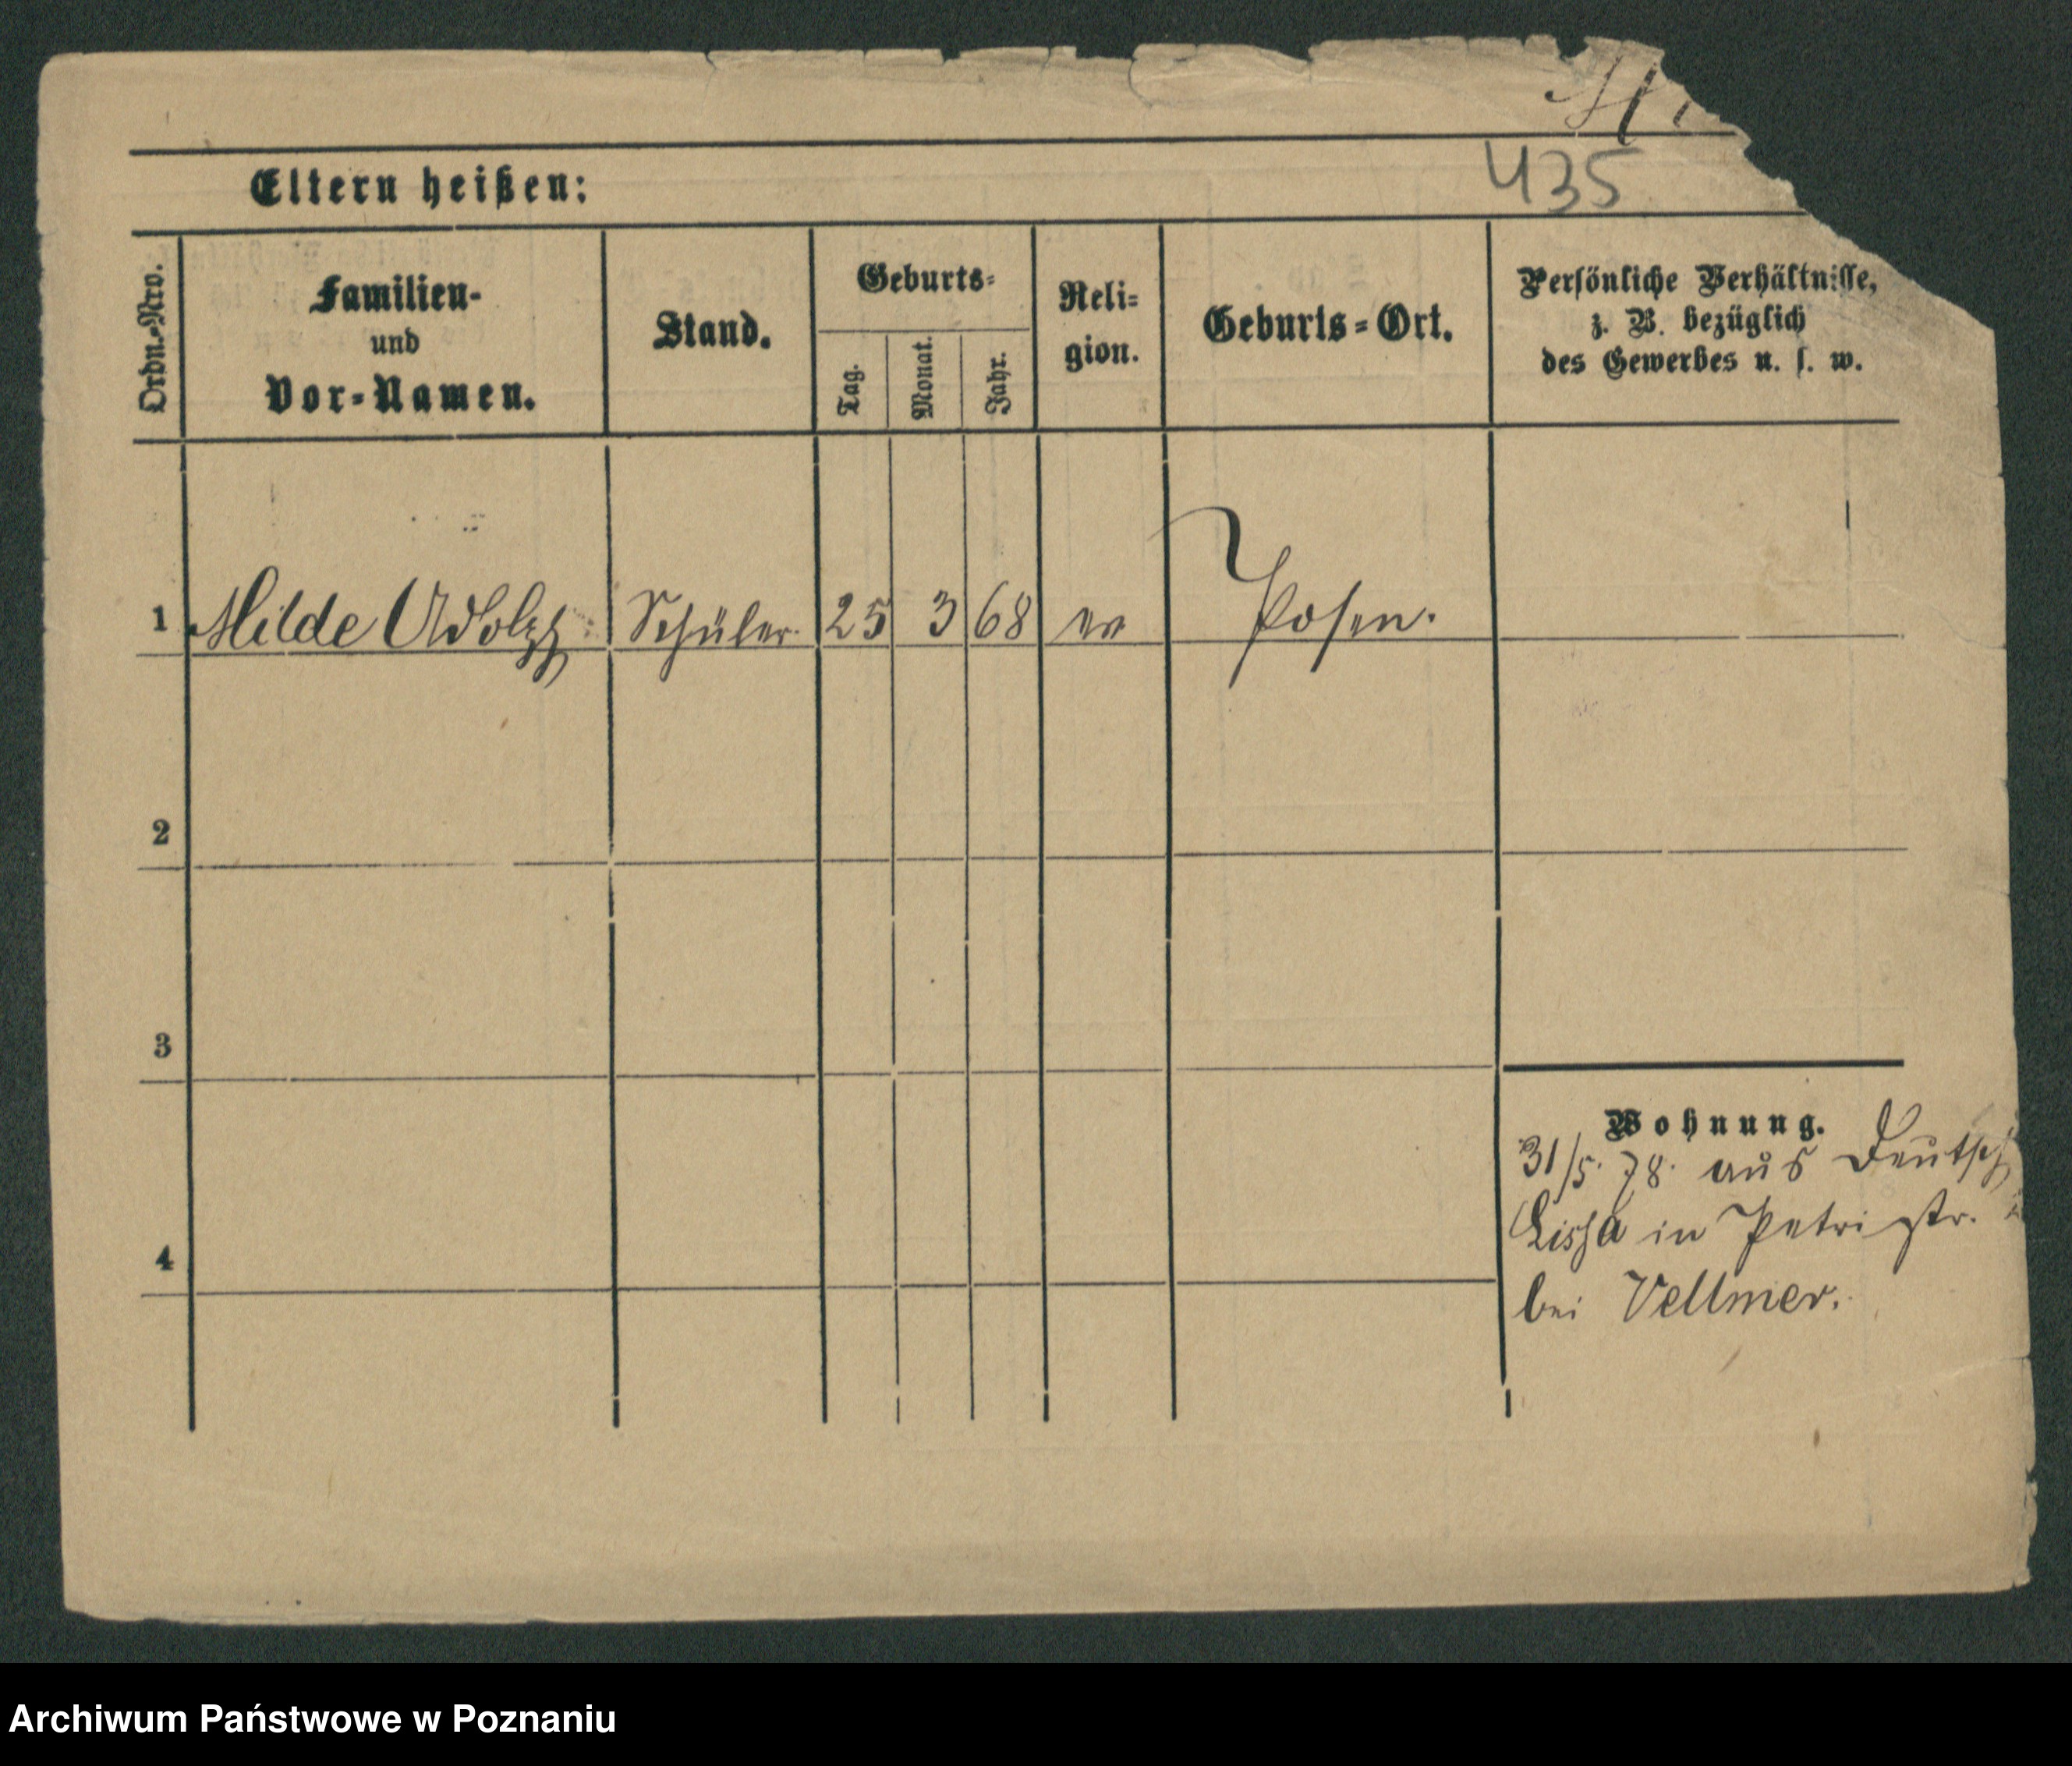 435
Eltern heißen:
Ordn.-Nro.
Familien-
und
Vor-Namen.
Stand.
Geburts-
Tag.
Monat.
Jahr.
Reli-
gion.
Geburts-Ort.
Persönliche Verhältnisse,
z. B. bezüglich
des Gewerbes u. s. w.
1 Milde Adolph Schüler 25 3 68 ev Posen.
2
3
Wohnung.
31/5. 78. aus Deutsch
Lissa in Petristr.
4
bei Vellmer.
Archiwum Państwowe w Poznaniu